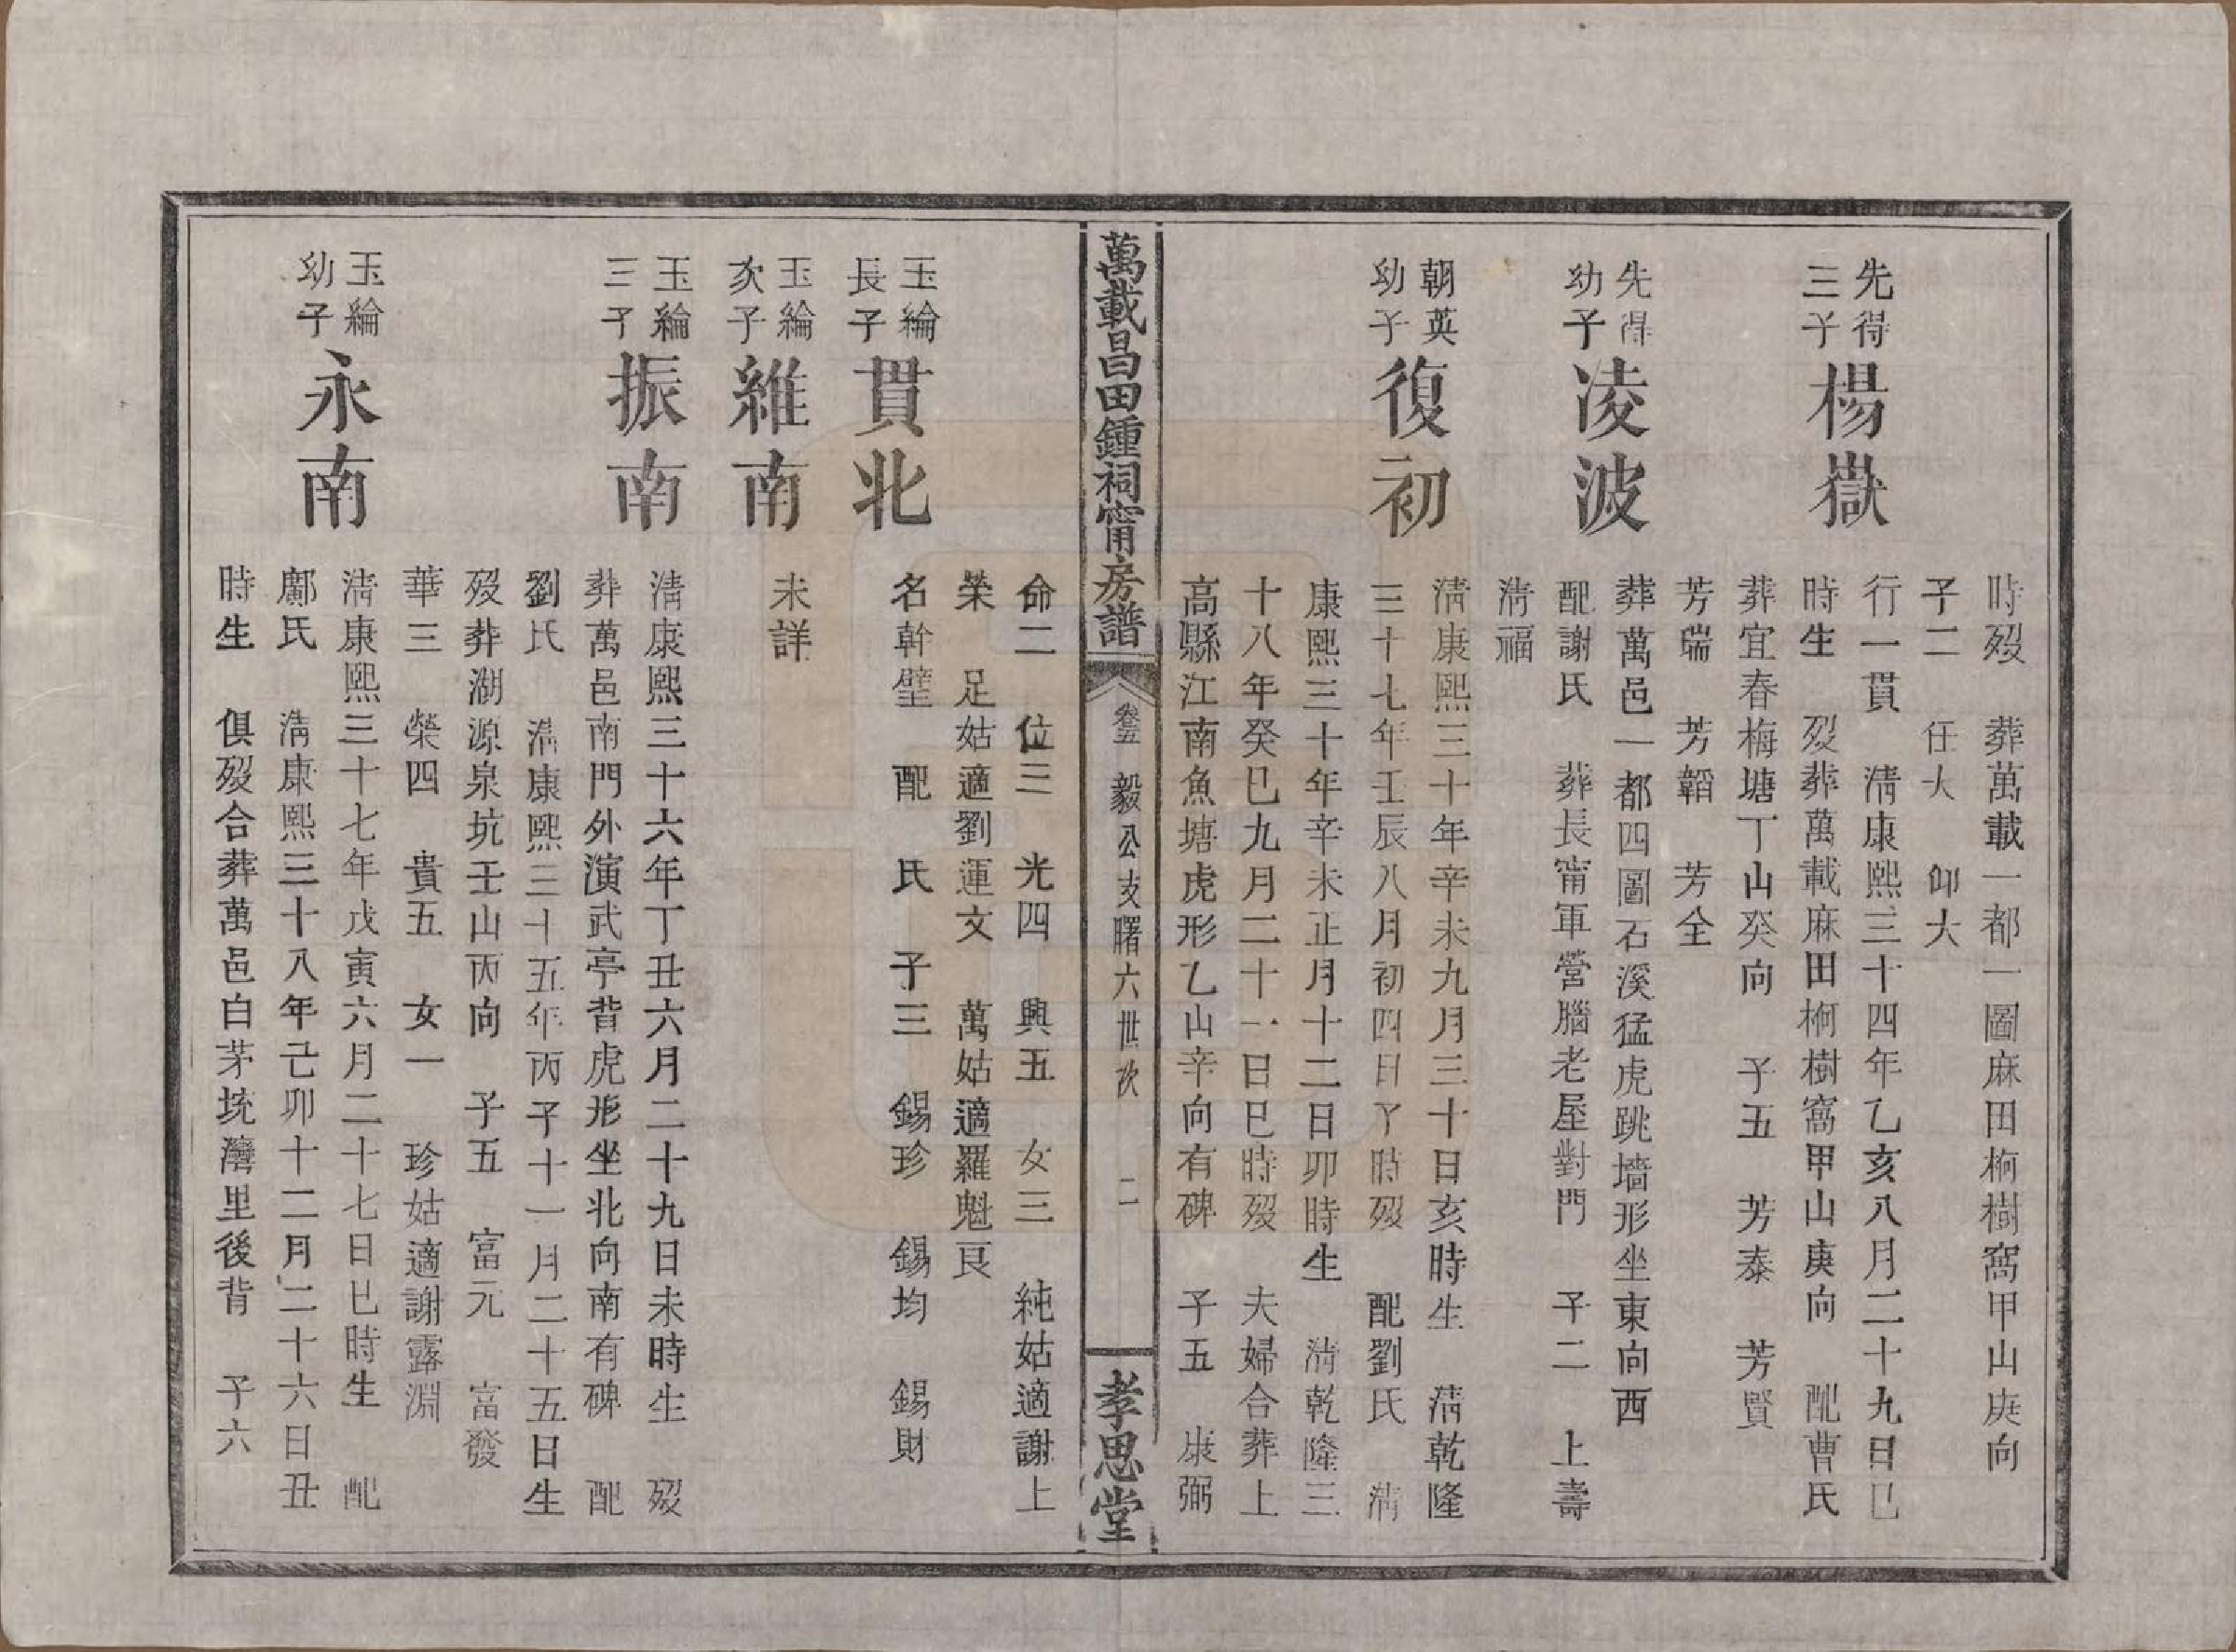 時歿　葬萬載一都一圖麻田㭴樹窩甲山庚向
子二　任大　仰大
先得
三子
楊嶽
行一貫　淸康熙三十四年乙亥八月二十九日巳
時生　歿葬萬載麻田㭴樹窩甲山庚向　配曹氏
葬宜春梅塘丁山癸向　子五　芳泰　芳賢
芳瑞　芳韜　芳全
先得
幼子
凌波
葬萬邑一都四圖石溪猛虎跳墻形坐東向西
配謝氏　葬長甯軍營腦老屋對門　子二　上壽
淸福
朝英
幼子
復初
淸康熙三十年辛未九月三十日亥時生　淸乾隆
三十七年壬辰八月初四日丫時歿　配劉氏　淸
康熙三十年辛未正月十二日卯時生　淸乾隆三
十八年癸巳九月二十一日巳時歿　夫婦合葬上
高縣江南魚塘虎形乙山辛向有碑　子五　康弼
萬載昌田鍾祠甯房譜
卷五　毅公支曙六世次　二
孝思堂
命二　位三　光四　興五　女三　純姑適謝上
榮　足姑適劉運文　萬姑適羅魁艮
玉綸
長子
貫北
名幹璧　配　氏　子三　錫珍　錫均　錫財
玉綸
次子
維南
未詳
玉綸
三子
振南
淸康熙三十六年丁丑六月二十九日未時生　歿
葬萬邑南門外演武亭背虎形坐北向南有碑　配
劉氏　淸康熙三十五年丙子十一月二十五日生
歿葬湖源泉坑壬山丙向　子五　富元　富發
華三　榮四　貴五　女一　珍姑適謝露淵
玉綸
幼子
永南
淸康熙三十七年戊寅六月二十七日巳時生　配
鄺氏　淸康熙三十八年己卯十二月二十六日丑
時生　俱歿合葬萬邑白茅垸灣里後背　子六